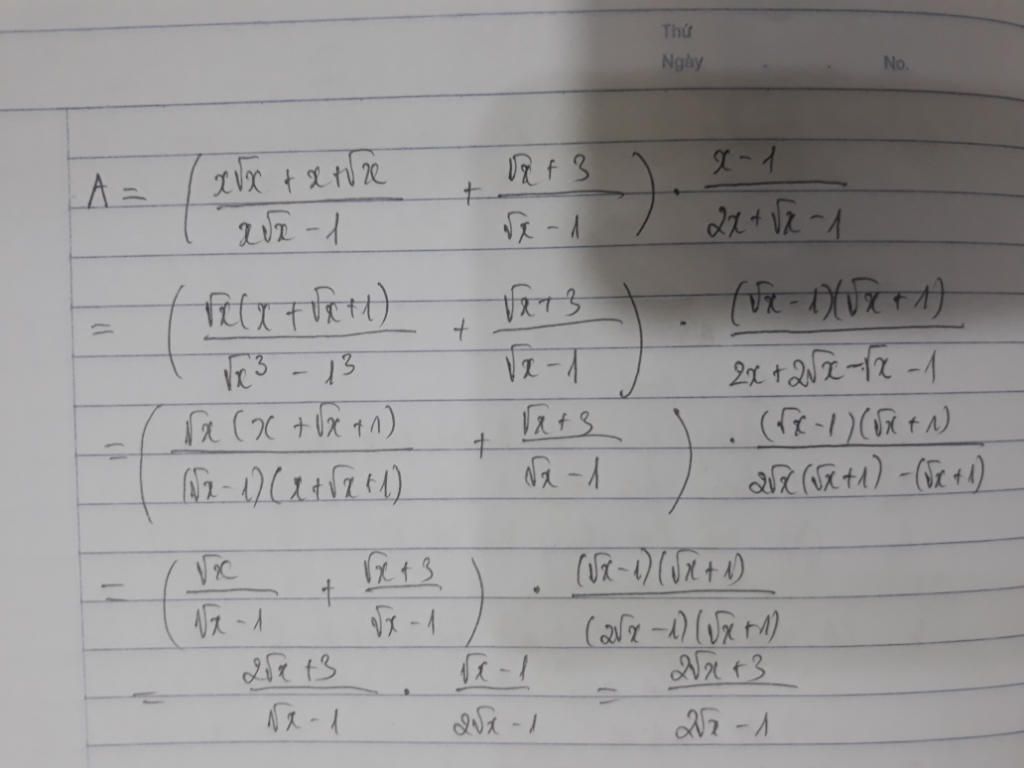 Thứ
Ngày . . No.
A = ( (x√x + x + √x)/(x√x - 1) + (√x + 3)/(√x - 1) ) · (x - 1)/(2x + √x - 1)
= ( √x(x + √x + 1)/(√x³ - 1³) + (√x + 3)/(√x - 1) ) · (√x - 1)(√x + 1)/(2x + 2√x - √x - 1)
= ( √x(x + √x + 1)/((√x - 1)(x + √x + 1)) + (√x + 3)/(√x - 1) ) · (√x - 1)(√x + 1)/(2√x(√x + 1) - (√x + 1))
= ( √x/(√x - 1) + (√x + 3)/(√x - 1) ) · (√x - 1)(√x + 1)/((2√x - 1)(√x + 1))
= (2√x + 3)/(√x - 1) · (√x - 1)/(2√x - 1) = (2√x + 3)/(2√x - 1)